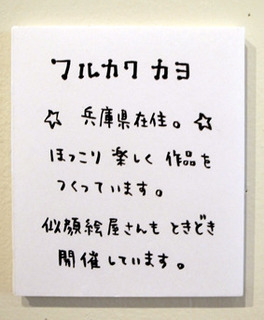 フルカワ カヨ
☆ 兵庫県在住。☆
ほっこり 楽しく 作品を
つくっています。
似顔絵屋さんも ときどき
開催しています。